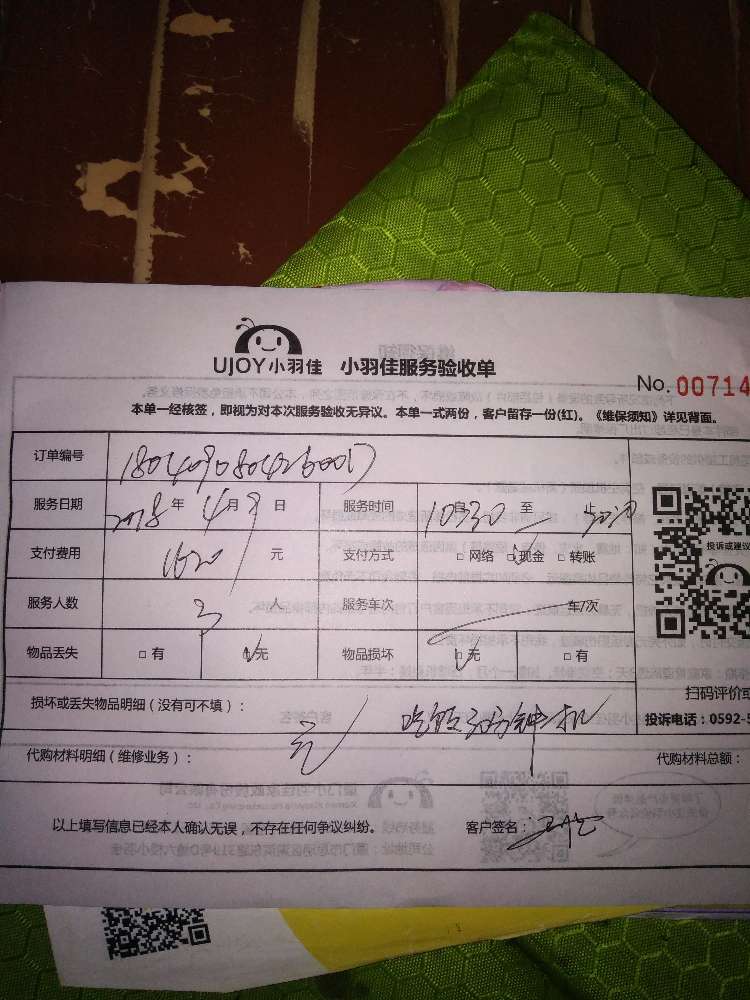 UJOY小羽佳 小羽佳服务验收单
No. 00714
本单一经核签，即视为对本次服务验收无异议。本单一式两份，客户留存一份(红)。《维保须知》详见背面。
订单编号
服务日期 2018 年 4 月 9 日 服务时间 10:30 至
支付费用 1620 元 支付方式 □ 网络 □ 现金 □ 转账
投诉或建议
服务人数 3 人 服务车次 车/次
物品丢失 □ 有 □ 无 物品损坏 □ 无 □ 有
扫码评价或
损坏或丢失物品明细（没有可不填）：
投诉电话：0592-5
无 吃饭30分钟
代购材料明细（维修业务）： 代购材料总额：
以上填写信息已经本人确认无误，不存在任何争议纠纷。 客户签名：